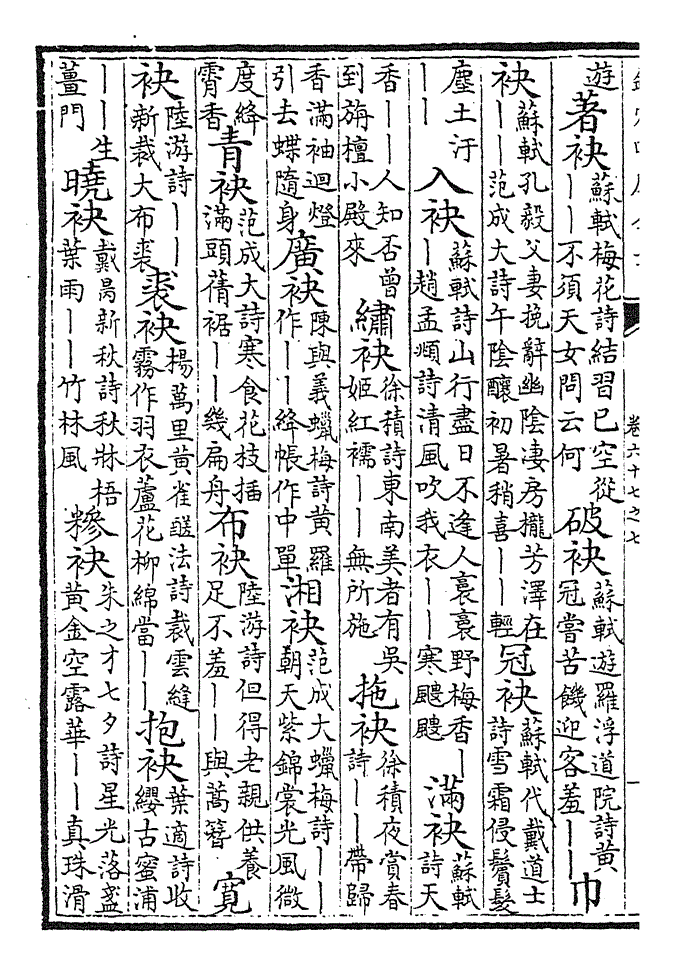 卷六十七之七
遊著袂蘇軾梅花詩結習已空從——不須天女問云何破袂蘇軾遊羅浮道院詩黄冠嘗苦饑迎客羞——巾
袂蘇軾孔毅父妻挽辭幽陰凄房櫳芳澤在——范成大詩午陰釀初暑稍喜——輕冠袂蘇軾代戴道士詩雪霜侵鬢髮
塵土汙——入袂蘇軾詩山行盡日不逢人裛裛野梅香——趙孟頫詩清風吹我衣——寒颸颸滿袂蘇軾詩天
香——人知否曾到旃檀小殿來繡袂徐積詩東南美者有吳姬紅襦——無所施拖袂徐積夜賞春詩——帶歸
香滿袖迴燈引去蝶隨身廣袂陳與義蠟梅詩黄羅作——絳帳作中單湘袂范成大蠟梅詩——朝天紫錦裳光風微
度絳霄香青袂范成大詩寒食花枝插滿頭蒨裾——幾扁舟布袂陸游詩但得老親供養足不羞——與萬簪寬
袂陸游詩——新裁大布裘裘袂楊萬里黄雀醝法詩裁雲縫霧作羽衣蘆花柳綿當——抱袂葉適詩收纓古蜜浦
——生薑門曉袂戴昺新秋詩秋牀梧葉雨——竹林風糝袂朱之才七夕詩星光落盞黄金空露華——真珠滑